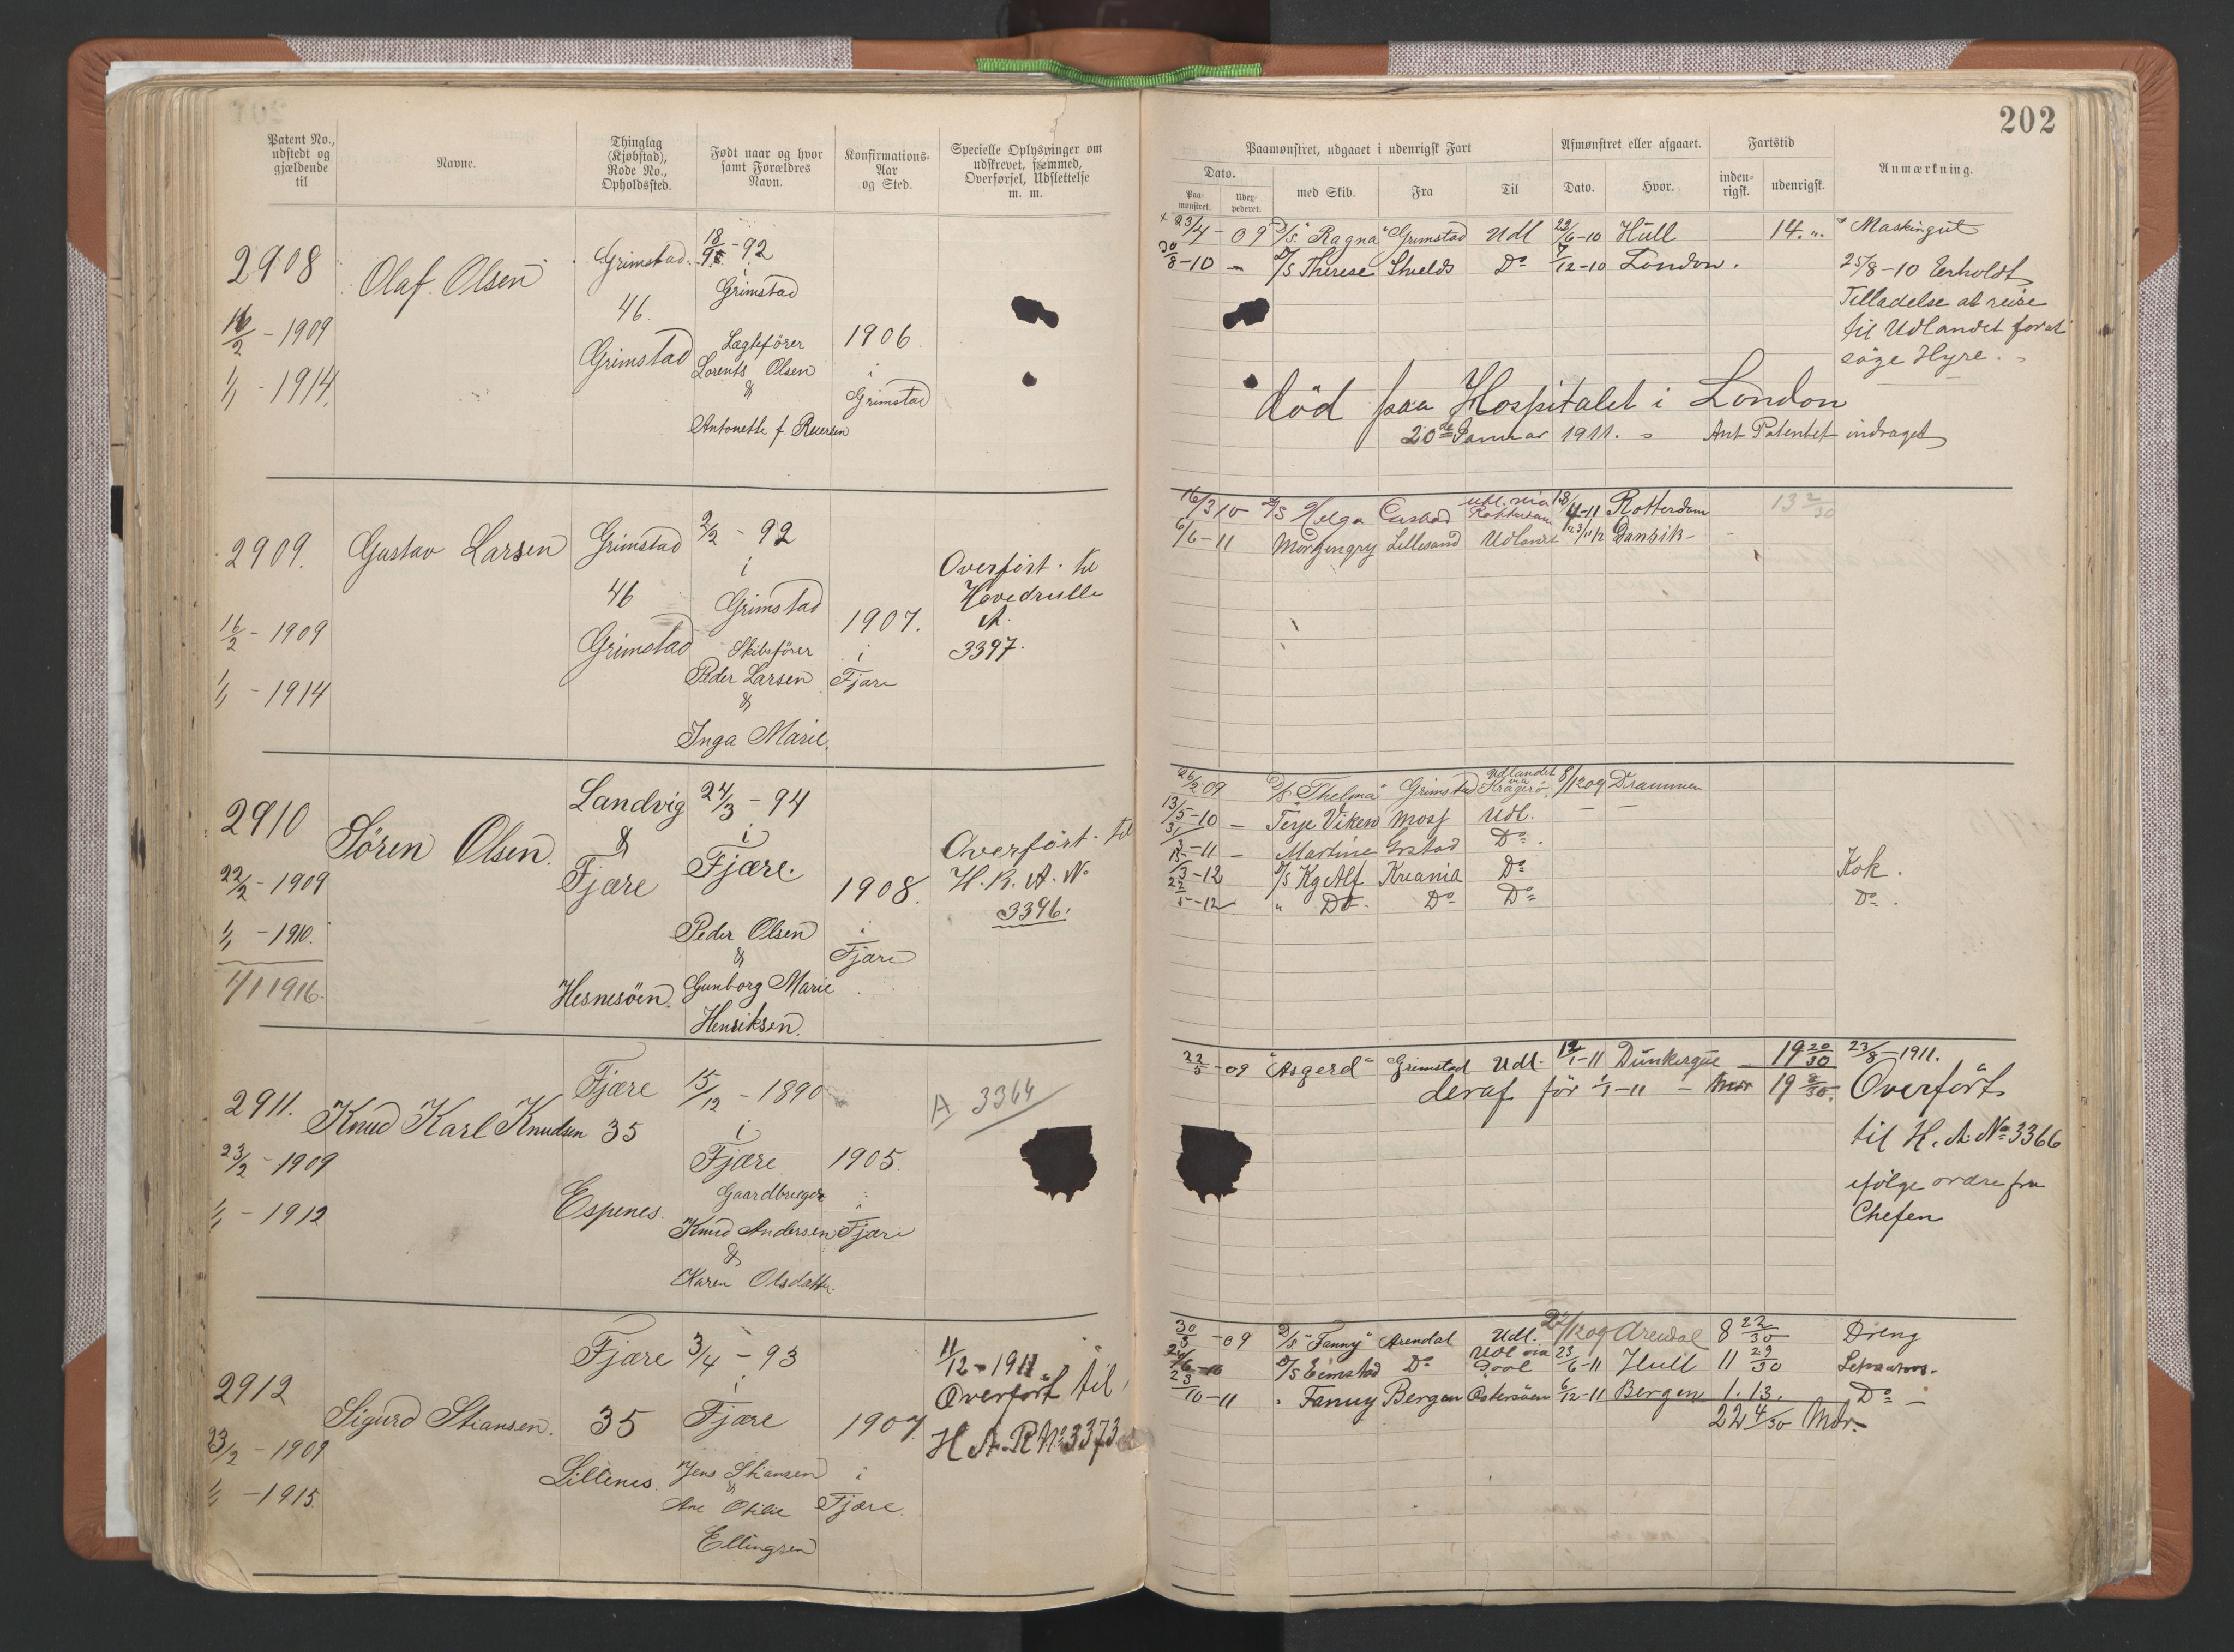 202
Patent No., udstedt og gjældende til
Navne.
Thinglag (Kjøbstad), Rode No., Opholdssted.
Født naar og hvor samt Forældres Navn.
Konfirmations-Aar og Sted.
Specielle Oplysninger om udskrevet, frem̅med, Overførsel, Udslettelse m. m.
Paamønstret, udgaaet i udenrigsk Fart
Afmønstret eller afgaaet.
Fartstid
Anmærkning.
Dato.
Paa-mønstret.
Udex-pederet.
med Skib.
Fra
Til
Dato.
Hvor.
inden-rigsk.
udenrigsk.
2908
16/2 - 1909
1/1 - 1914.
Olaf Olsen
Grimstad
46
Grimstad
18/9 - 92
i
Grimstad
Lægtefører
Lorents Olsen
&
Antonette f.
1906
i
Grimstad
23/4 - 09 D/S "Ragna" Grimstad Udl 22/6-10 Hull 14 "
Maskingut
30/8-10 - D/S Therese Shields Do 7/12-10 London.
25/8-10 Erholdt
Tilladelse at reise
til Udlandet for at
søge Hyre.
död paa Hospitalet i London
20de Januar 1911. Ant Patentet indraget
2909.
16/2 - 1909
1/1 - 1914
Gustav Larsen
Grimstad
46
Grimstad
2/2 - 92
i
Grimstad
Skibsfører
Peder Larsen
&
Inga Marie.
1907.
i
Fjære
Overfört til
Hovedrulle
A.
3397.
16/3 10 D/S Helga Udl. via Rotterdam 18/4-11 Rotterdam 13 2/30
6/6-11 Morgengry Lillesand Udlandet 23/11 12 Dansik -
2910
22/2 - 1909
1/1 - 1910.
1/1 1916.
Sören Olsen.
Landvig
&
Fjære
Hesnesöen.
24/3 - 94
i
Fjære.
Peder Olsen
&
Gunborg Marie
Henriksen.
1908.
i
Fjære
Overfört til
H. R. A. No
3396.
26/2 09 D/S "Thelma" Grimstad Udlandet via Kragerö 8/12 09 Drammen
13/5-10 - Terje Viken Moss Udl. - -
- 11 - Martine Grstad Do.
- 12 D/S Kg Alf Krania Do
Kok.
- 12 " Do - Do Do
Do.
2911.
23/2 - 1909
1/1 - 1912
Knud Karl Knudsen
Fjære
35
Espenes.
15/12 - 1890
i
Fjære
Gaardbruger
Knud Andersen
&
Karen Olsdatter.
1905.
i
Fjære
A 3364
22/5-09 "Asgerd" Grimstad Udl. 12/1-11 Dunkerque - 19 20/30
deraf för 1/1-11 - Mdr 19 8/30.
23/8 - 1911.
Overfört
til H. A. No 3366
ifölge ordre fra
Chefen
2912
23/2 - 1909
1/1 - 1915.
Sigurd Stiansen.
Fjære
35
Lillenes.
3/4 - 93
i
Fjære
Jens Stiansen
&
Ane Otilie
Ellingsen
1907.
i
Fjære.
11/12 - 1911
Overfört til
H A R No 3373
30/3 - 09 D/S "Fanny" Arendal Udl. 22/12 09 Arendal 8 22/30
Dreng
24/6 - 10 D/S Grimstad Do Udl via 23/6-11 Hull 11 29/30
23/10-11 " Fanny Bergen Östersöen 6/12-11 Bergen 1. 13.
Do -
22 4/30 Mdr.